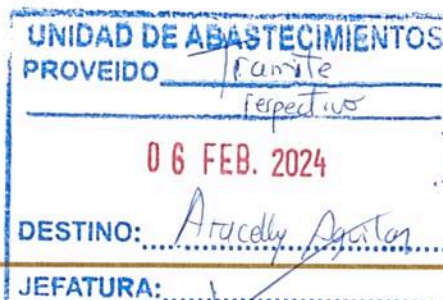 UNIDAD DE ABASTECIMIENTOS
PROVEIDO Tramite
respectivo
06 FEB. 2024
DESTINO: Aracelly Aguilar
JEFATURA: